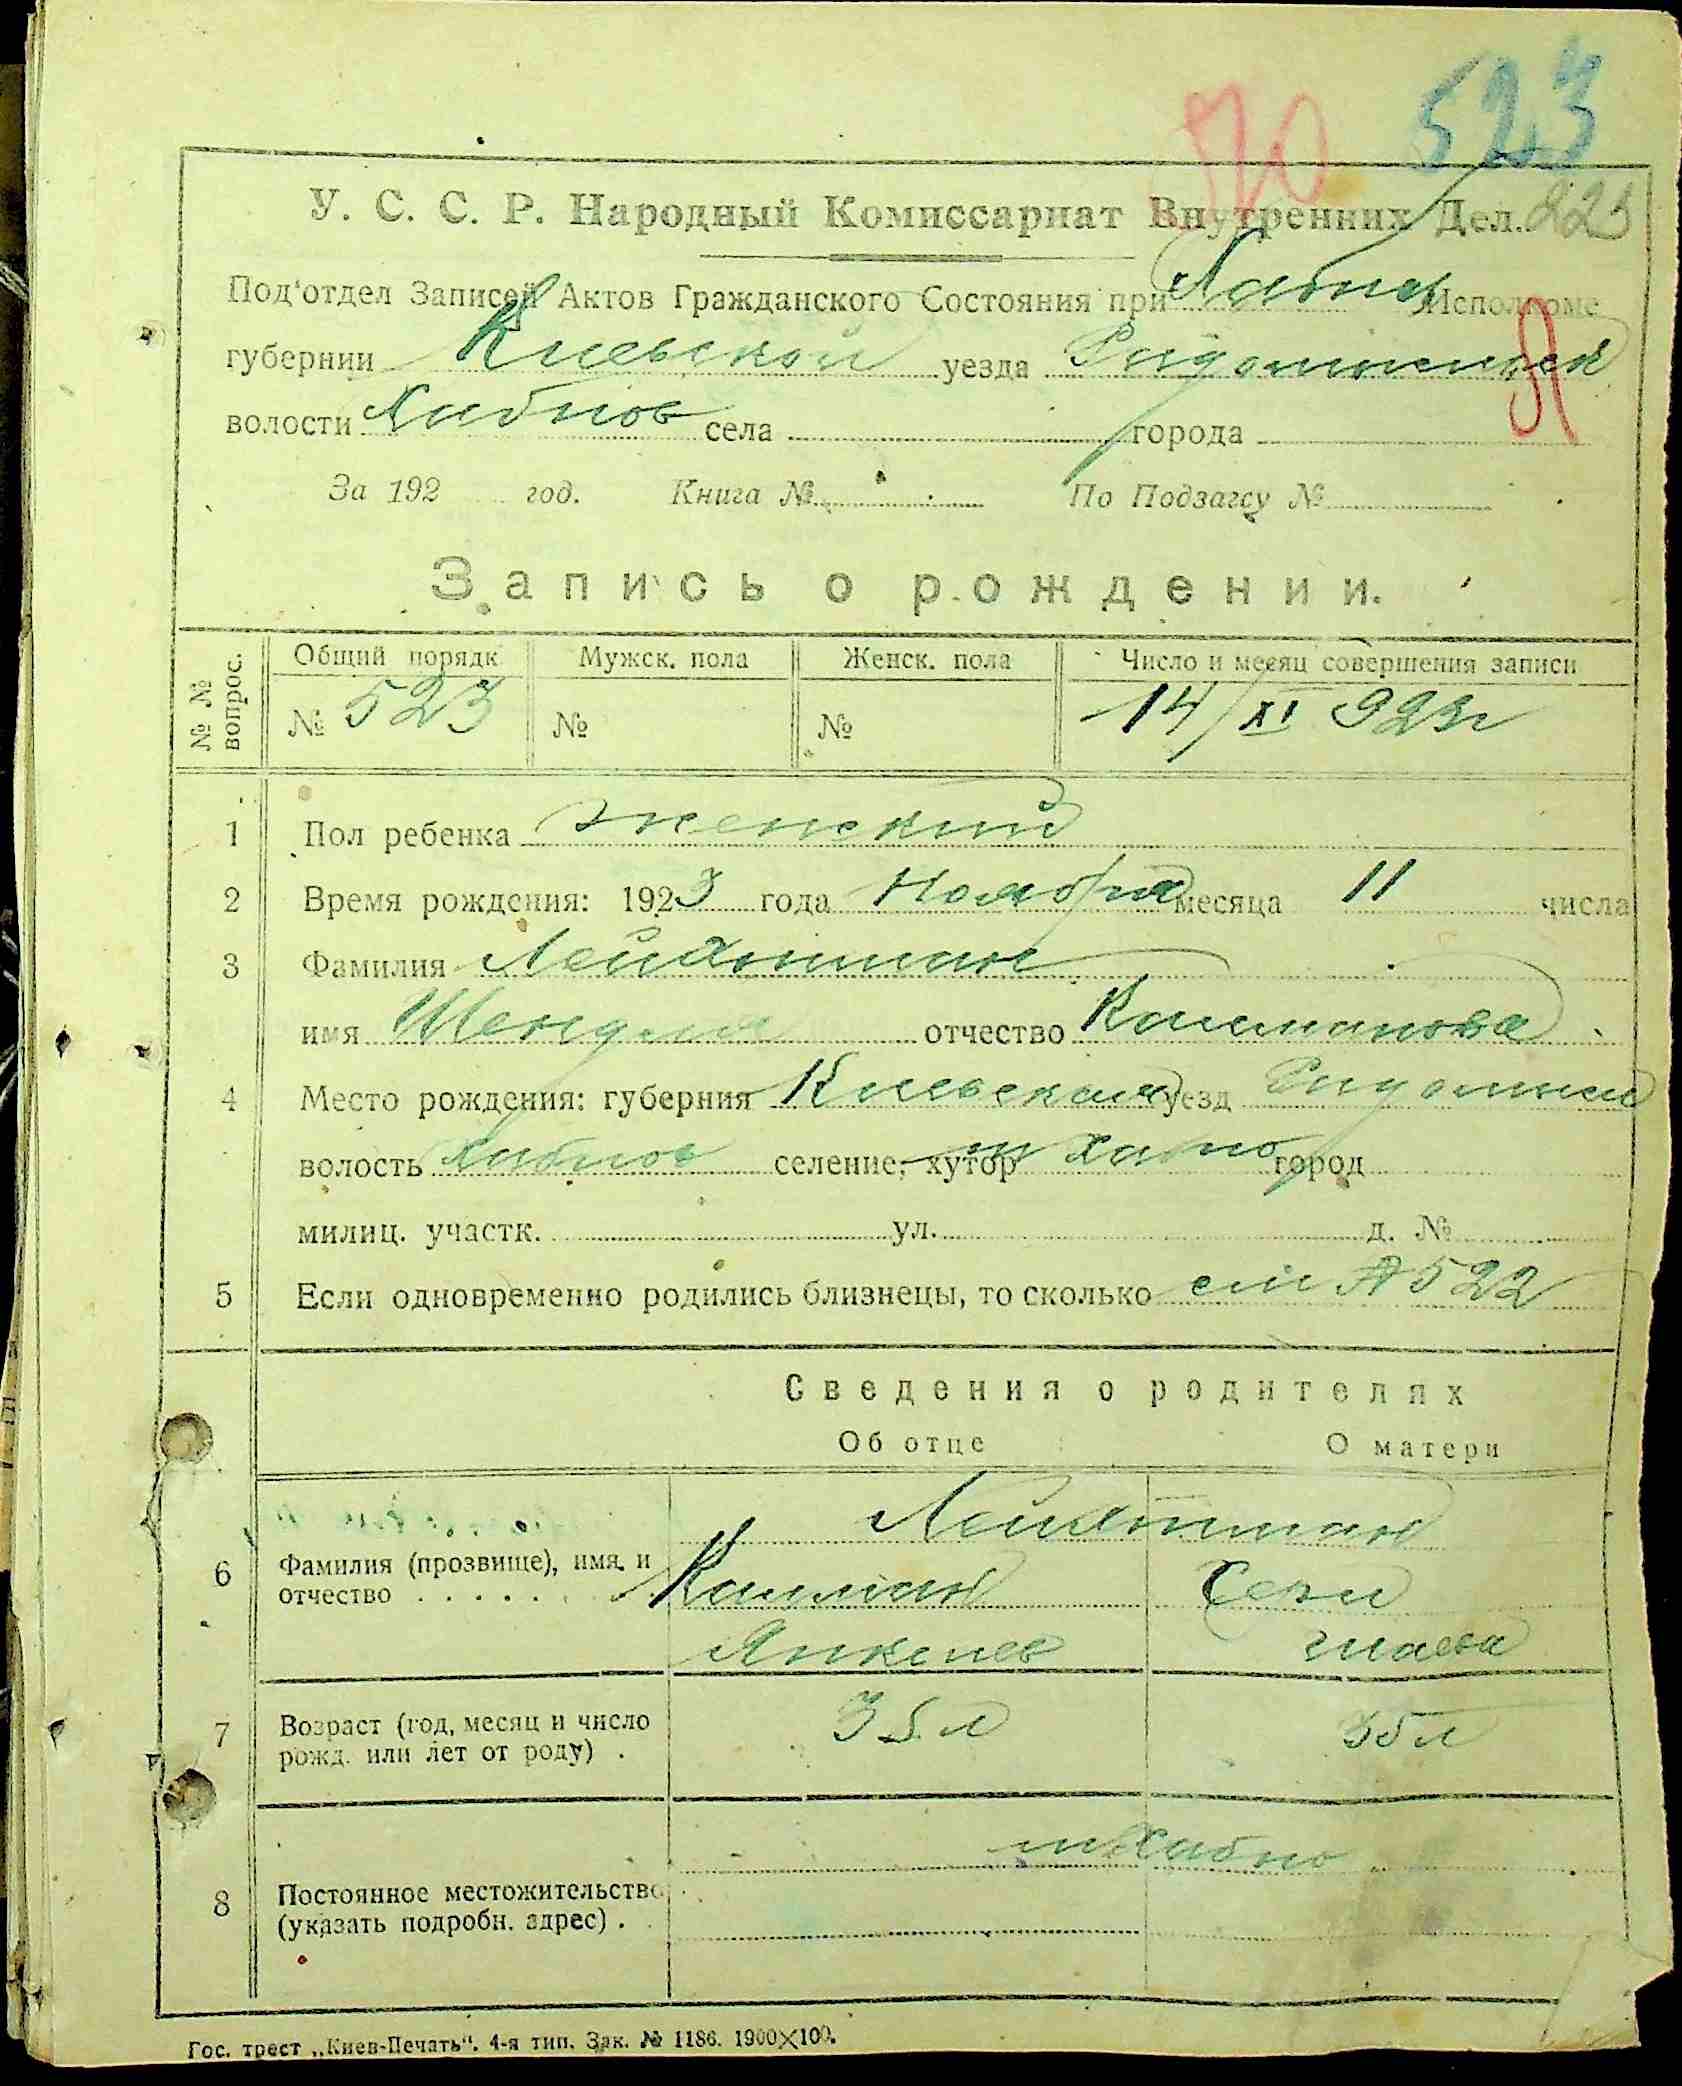 70 523
У. С. С. Р. Народный Комиссариат Внутренних Дел. 223
Под'отдел Записей Актов Гражданского Состояния при Хабнов Исполкоме
губернии Киевской уезда Радомысльск
волости Хабнов села города
За 192 год. Книга № По Подзагсу №
Запись о рождении.
№ № вопрос. Общий порядк Мужск. пола Женск. пола Число и месяц совершения записи
№ 523 № № 14/XI 923г
1 Пол ребенка женский
2 Время рождения: 1923 года Ноября месяца 11 числа
3 Фамилия
имя Шендля отчество Калманова
4 Место рождения: губерния Киевская уезд Радомысл
волость Хабнов селение, хутор м Хабно город
милиц. участк. ул. д. №
5 Если одновременно родились близнецы, то сколько см А 522
Сведения о родителях
Об отце О матери
6 Фамилия (прозвище), имя и
отчество Калман
Янкелев
7 Возраст (год, месяц и число 35 л 35 л
рожд. или лет от роду)
м Хабно
8 Постоянное местожительство
(указать подробн. адрес)
Гос. трест „Киев-Печать“. 4-я тип. Зак. № 1186. 1900×100.